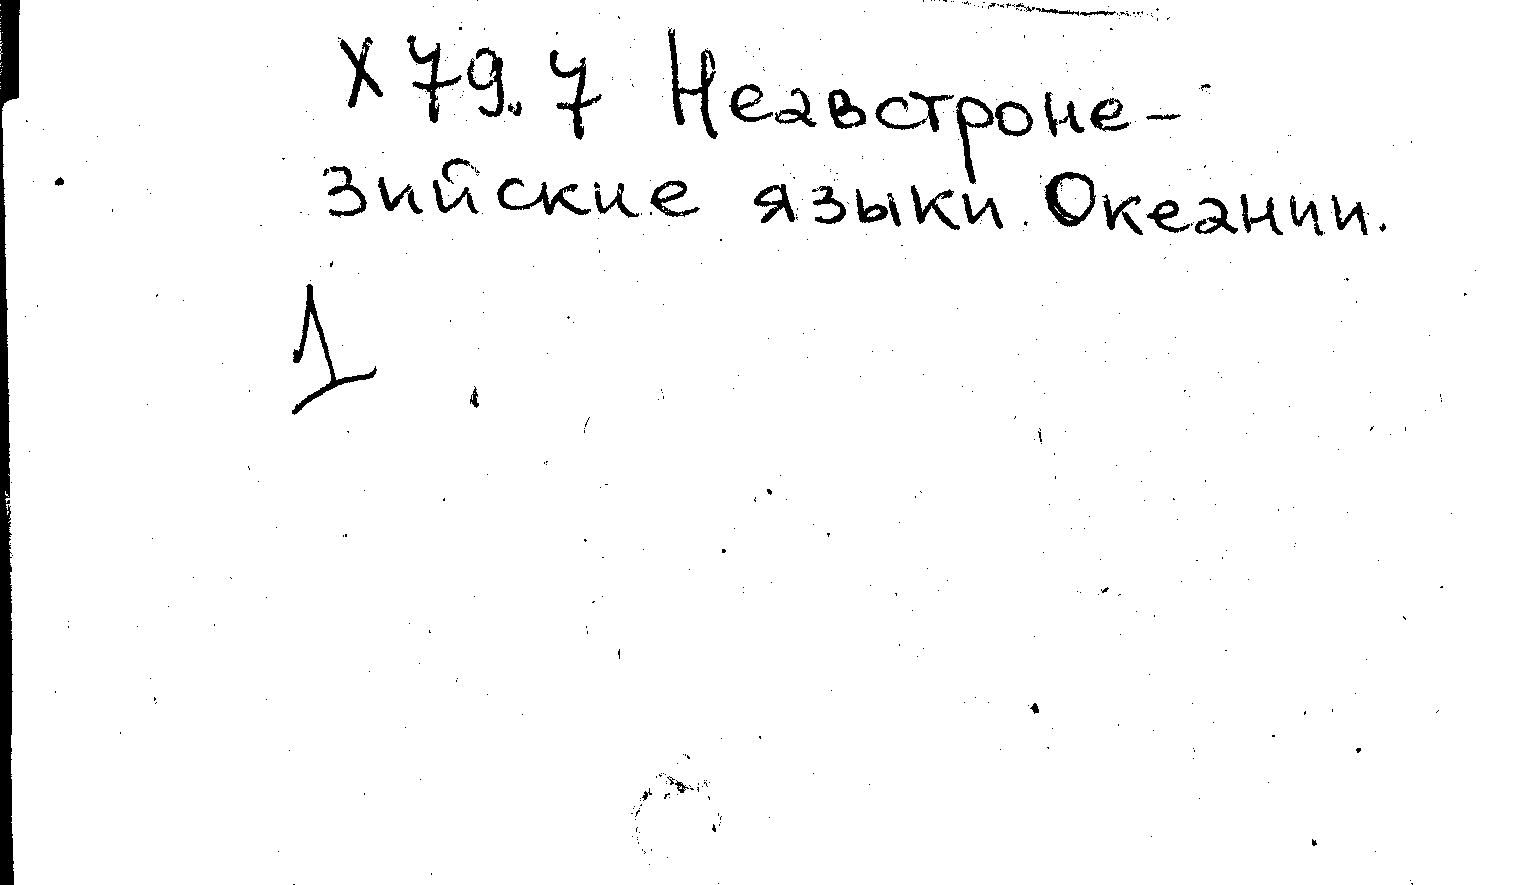 Х 79.7 Неавстроне-
зийские языки Океании.
1